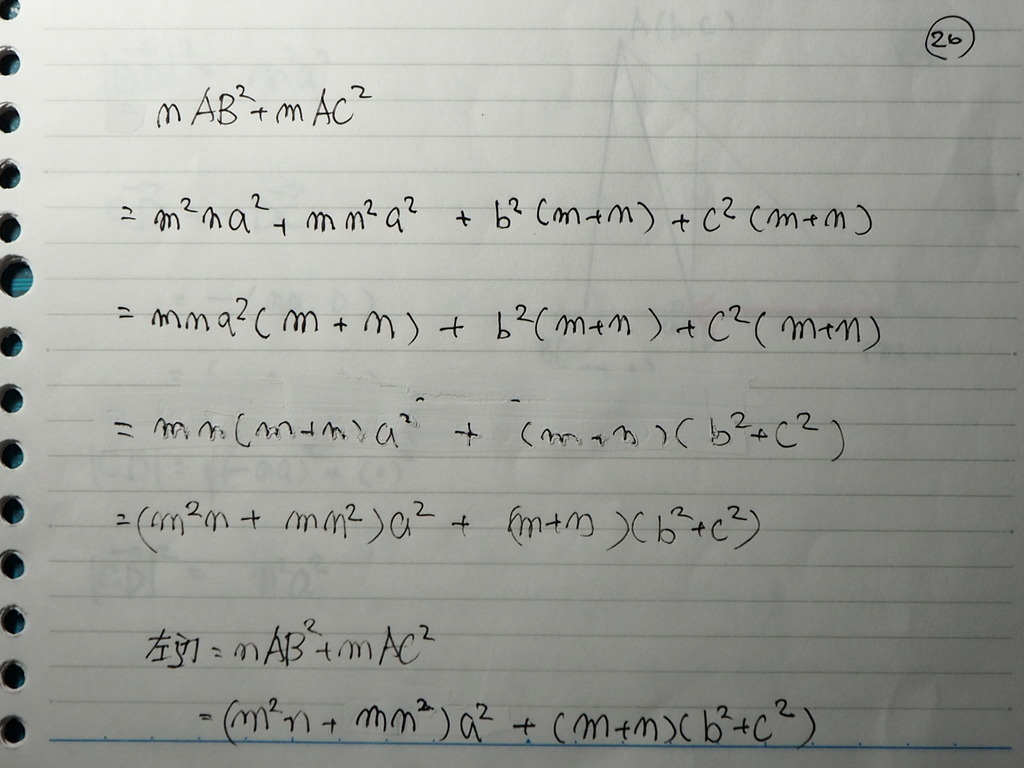 26
nAB²+mAC²
= m²na² + mn²a² + b²(m+n) + c²(m+n)
= mna²(m+n) + b²(m+n) + c²(m+n)
= mn(m+n)a² + (m+n)(b²+c²)
=(m²n + mn²)a² + (m+n)(b²+c²)
左辺 = nAB²+mAC²
= (m²n + mn²)a² + (m+n)(b²+c²)